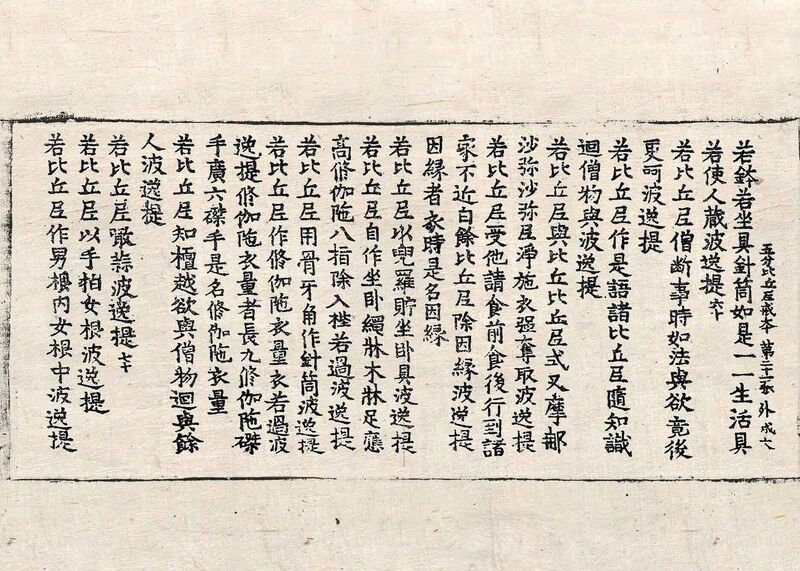 五分比丘尼戒本 外成六
若鉢若坐具針筒如是一一生活具
若使人藏波逸提六十
若比丘尼僧断事時如法與欲竟後
更呵波逸提
若比丘尼作是語諸比丘尼隨知識
迴僧物與波逸提
若比丘尼與比丘比丘尼式叉摩那
沙弥沙弥尼淨施衣强奪取波逸提
若比丘尼受他請食前食後行到諸
家不近白餘比丘尼除因縁波逸提
因縁者衣時是名因縁
若比丘尼以兜羅貯坐卧具波逸提
若比丘尼自作坐卧繩牀木牀足應
高脩伽陁八指除入梐若過波逸提
若比丘尼用骨牙角作針筒波逸提
若比丘尼作脩伽陁衣量衣若過波
逸提脩伽陁衣量者長九脩伽陁磔
手廣六磔手是名脩伽陁衣量
若比丘尼知檀越欲與僧物迴與餘
人波逸提
若比丘尼噉蒜波逸提七十
若比丘尼以手拍女根波逸提
若比丘尼作男根内女根中波逸提